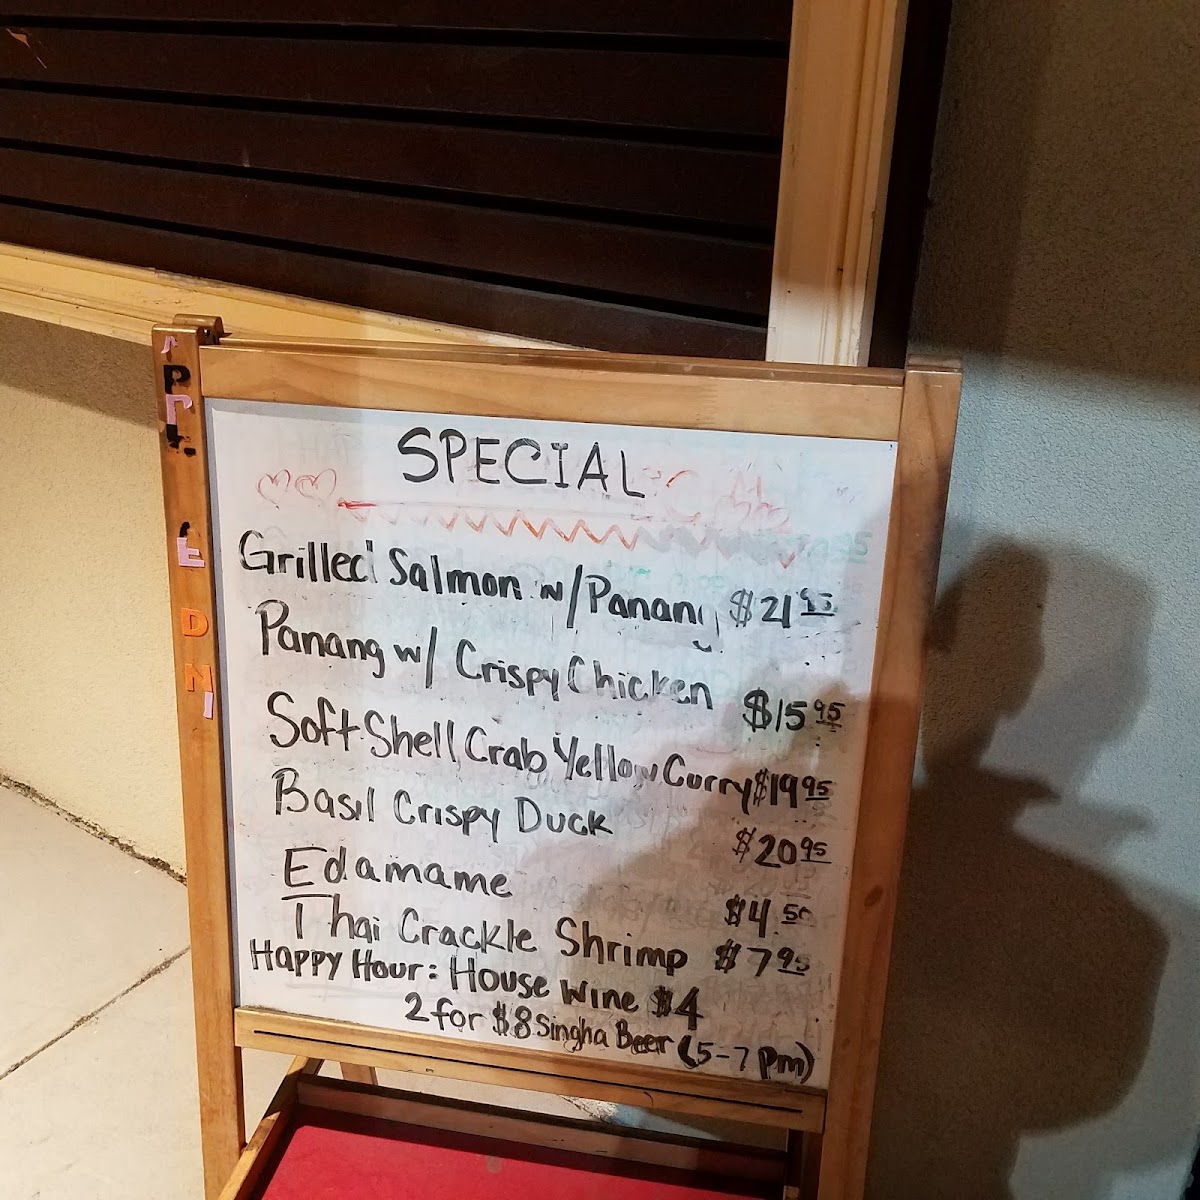 SPECIAL
Grilled Salmon w/Panang $21.95
Panang w/ Crispy Chicken $15.95
Soft Shell Crab Yellow Curry $19.95
Basil Crispy Duck $20.95
Edamame $4.50
Thai Crackle Shrimp $7.95
Happy Hour: House Wine $4
2 for $8 Singha Beer (5-7 pm)